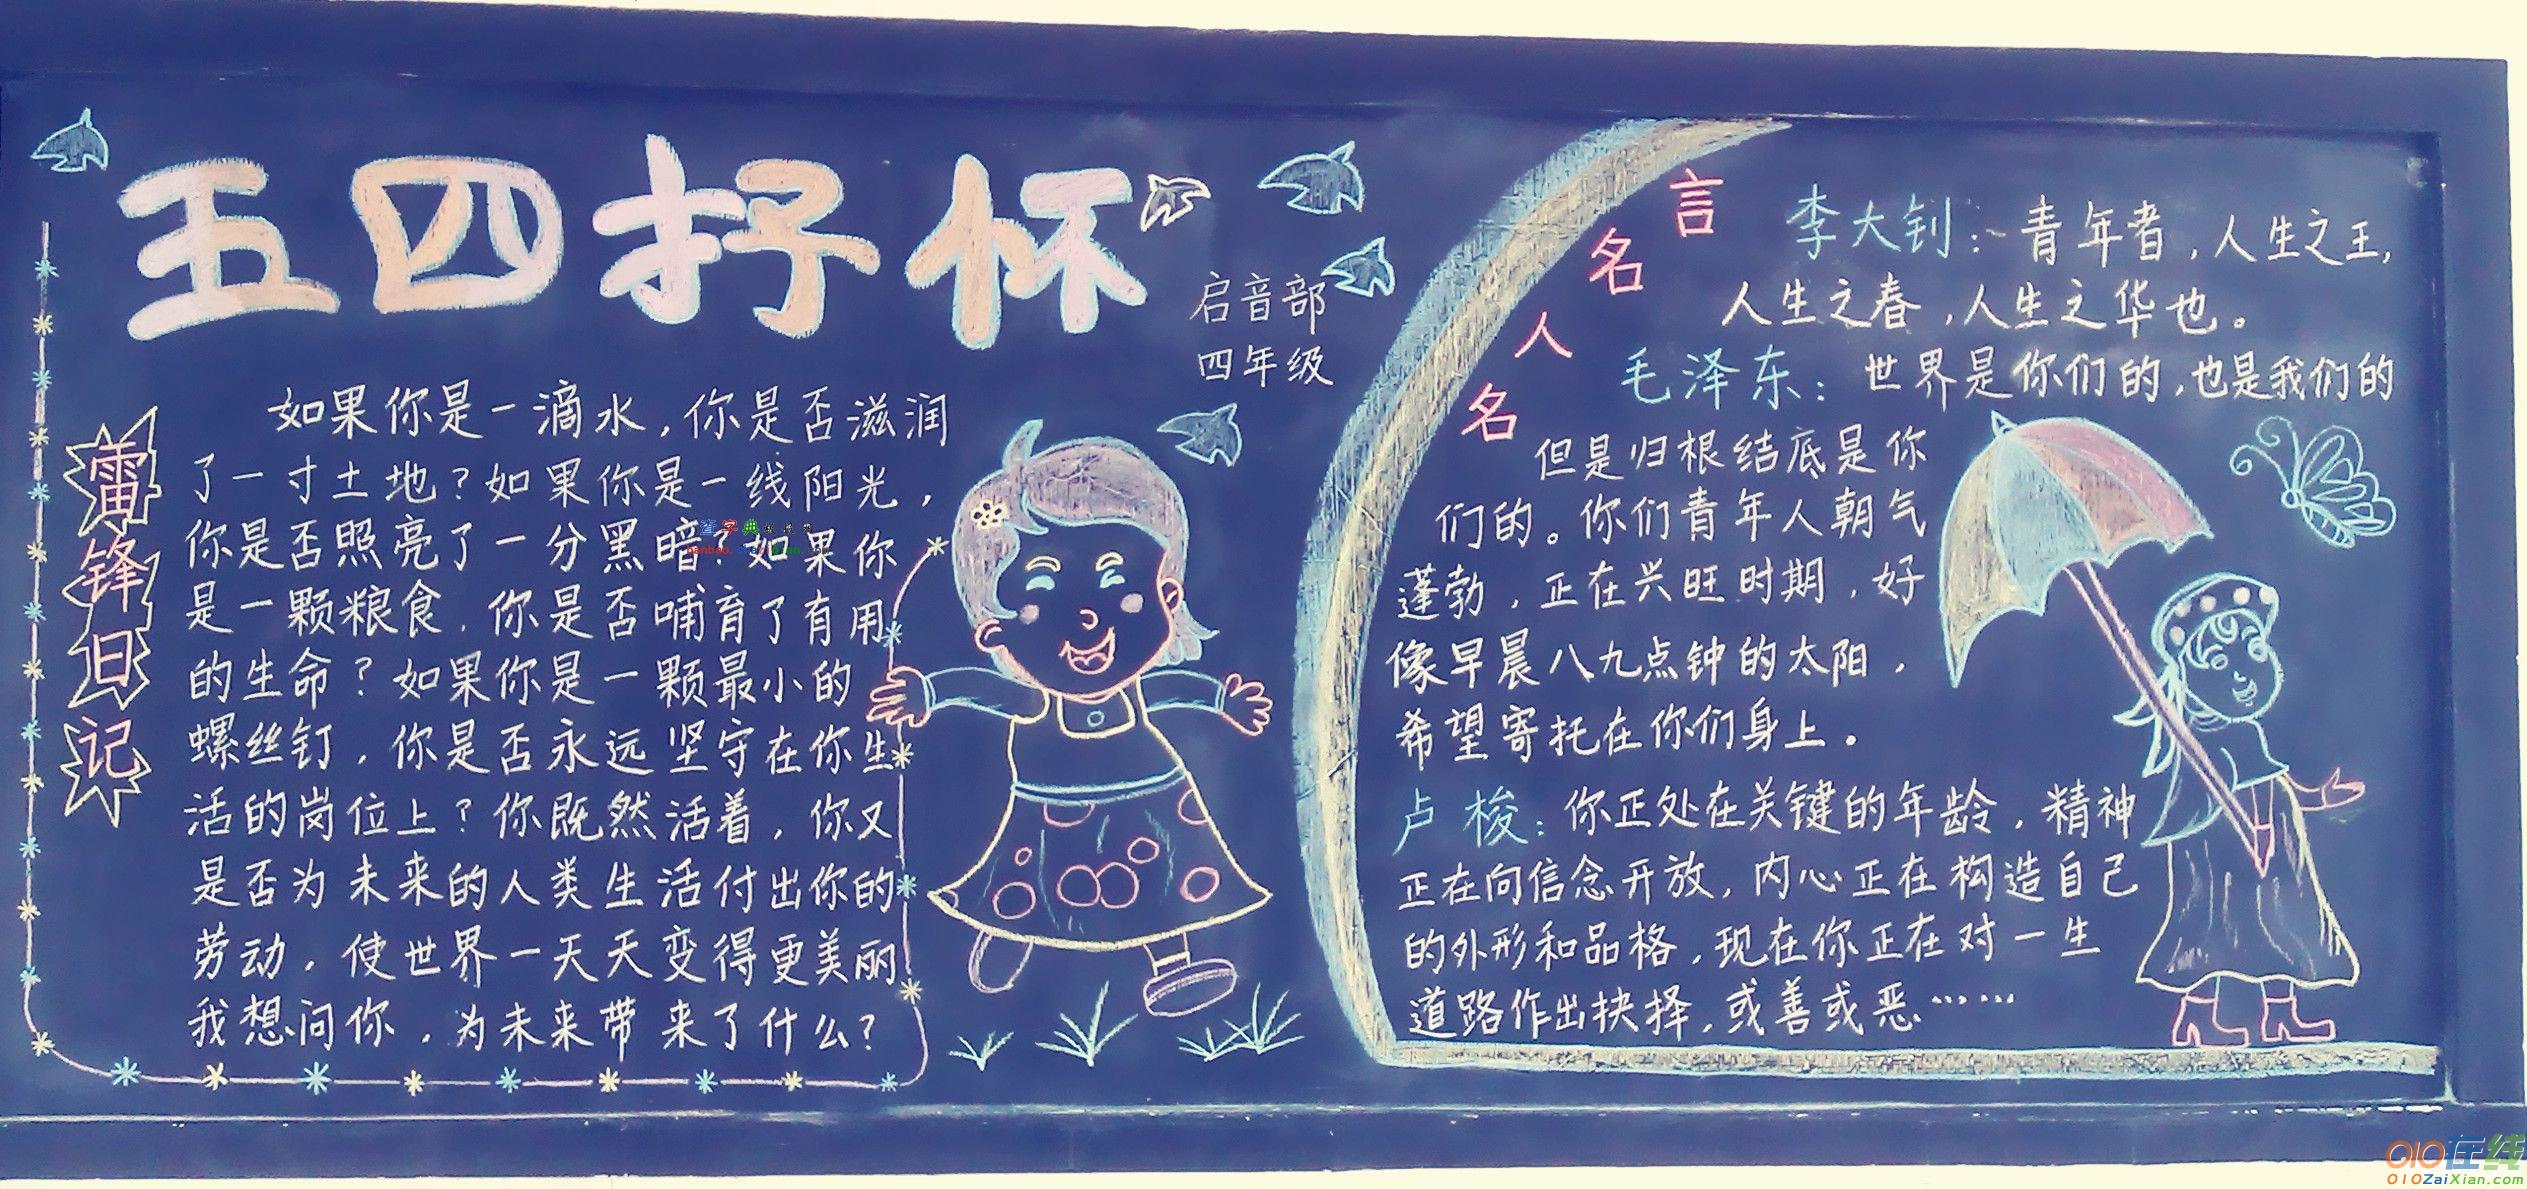 五四抒怀
启音部
四年级
雷锋日记
如果你是一滴水，你是否滋润
了一寸土地？如果你是一线阳光，
你是否照亮了一分黑暗？如果你
是一颗粮食，你是否哺育了有用
的生命？如果你是一颗最小的
螺丝钉，你是否永远坚守在你生
活的岗位上？你既然活着，你又
是否为未来的人类生活付出你的
劳动，使世界一天天变得更美丽
我想问你，为未来带来了什么？
名人名言
李大钊：青年者，人生之王，
人生之春，人生之华也。
毛泽东：世界是你们的，也是我们的
但是归根结底是你
们的。你们青年人朝气
蓬勃，正在兴旺时期，好
像早晨八九点钟的太阳，
希望寄托在你们身上。
卢梭：你正处在关键的年龄，精神
正在向信念开放，内心正在构造自己
的外形和品格，现在你正在对一生
道路作出抉择，或善或恶……
010在线
010ZaiXian.com